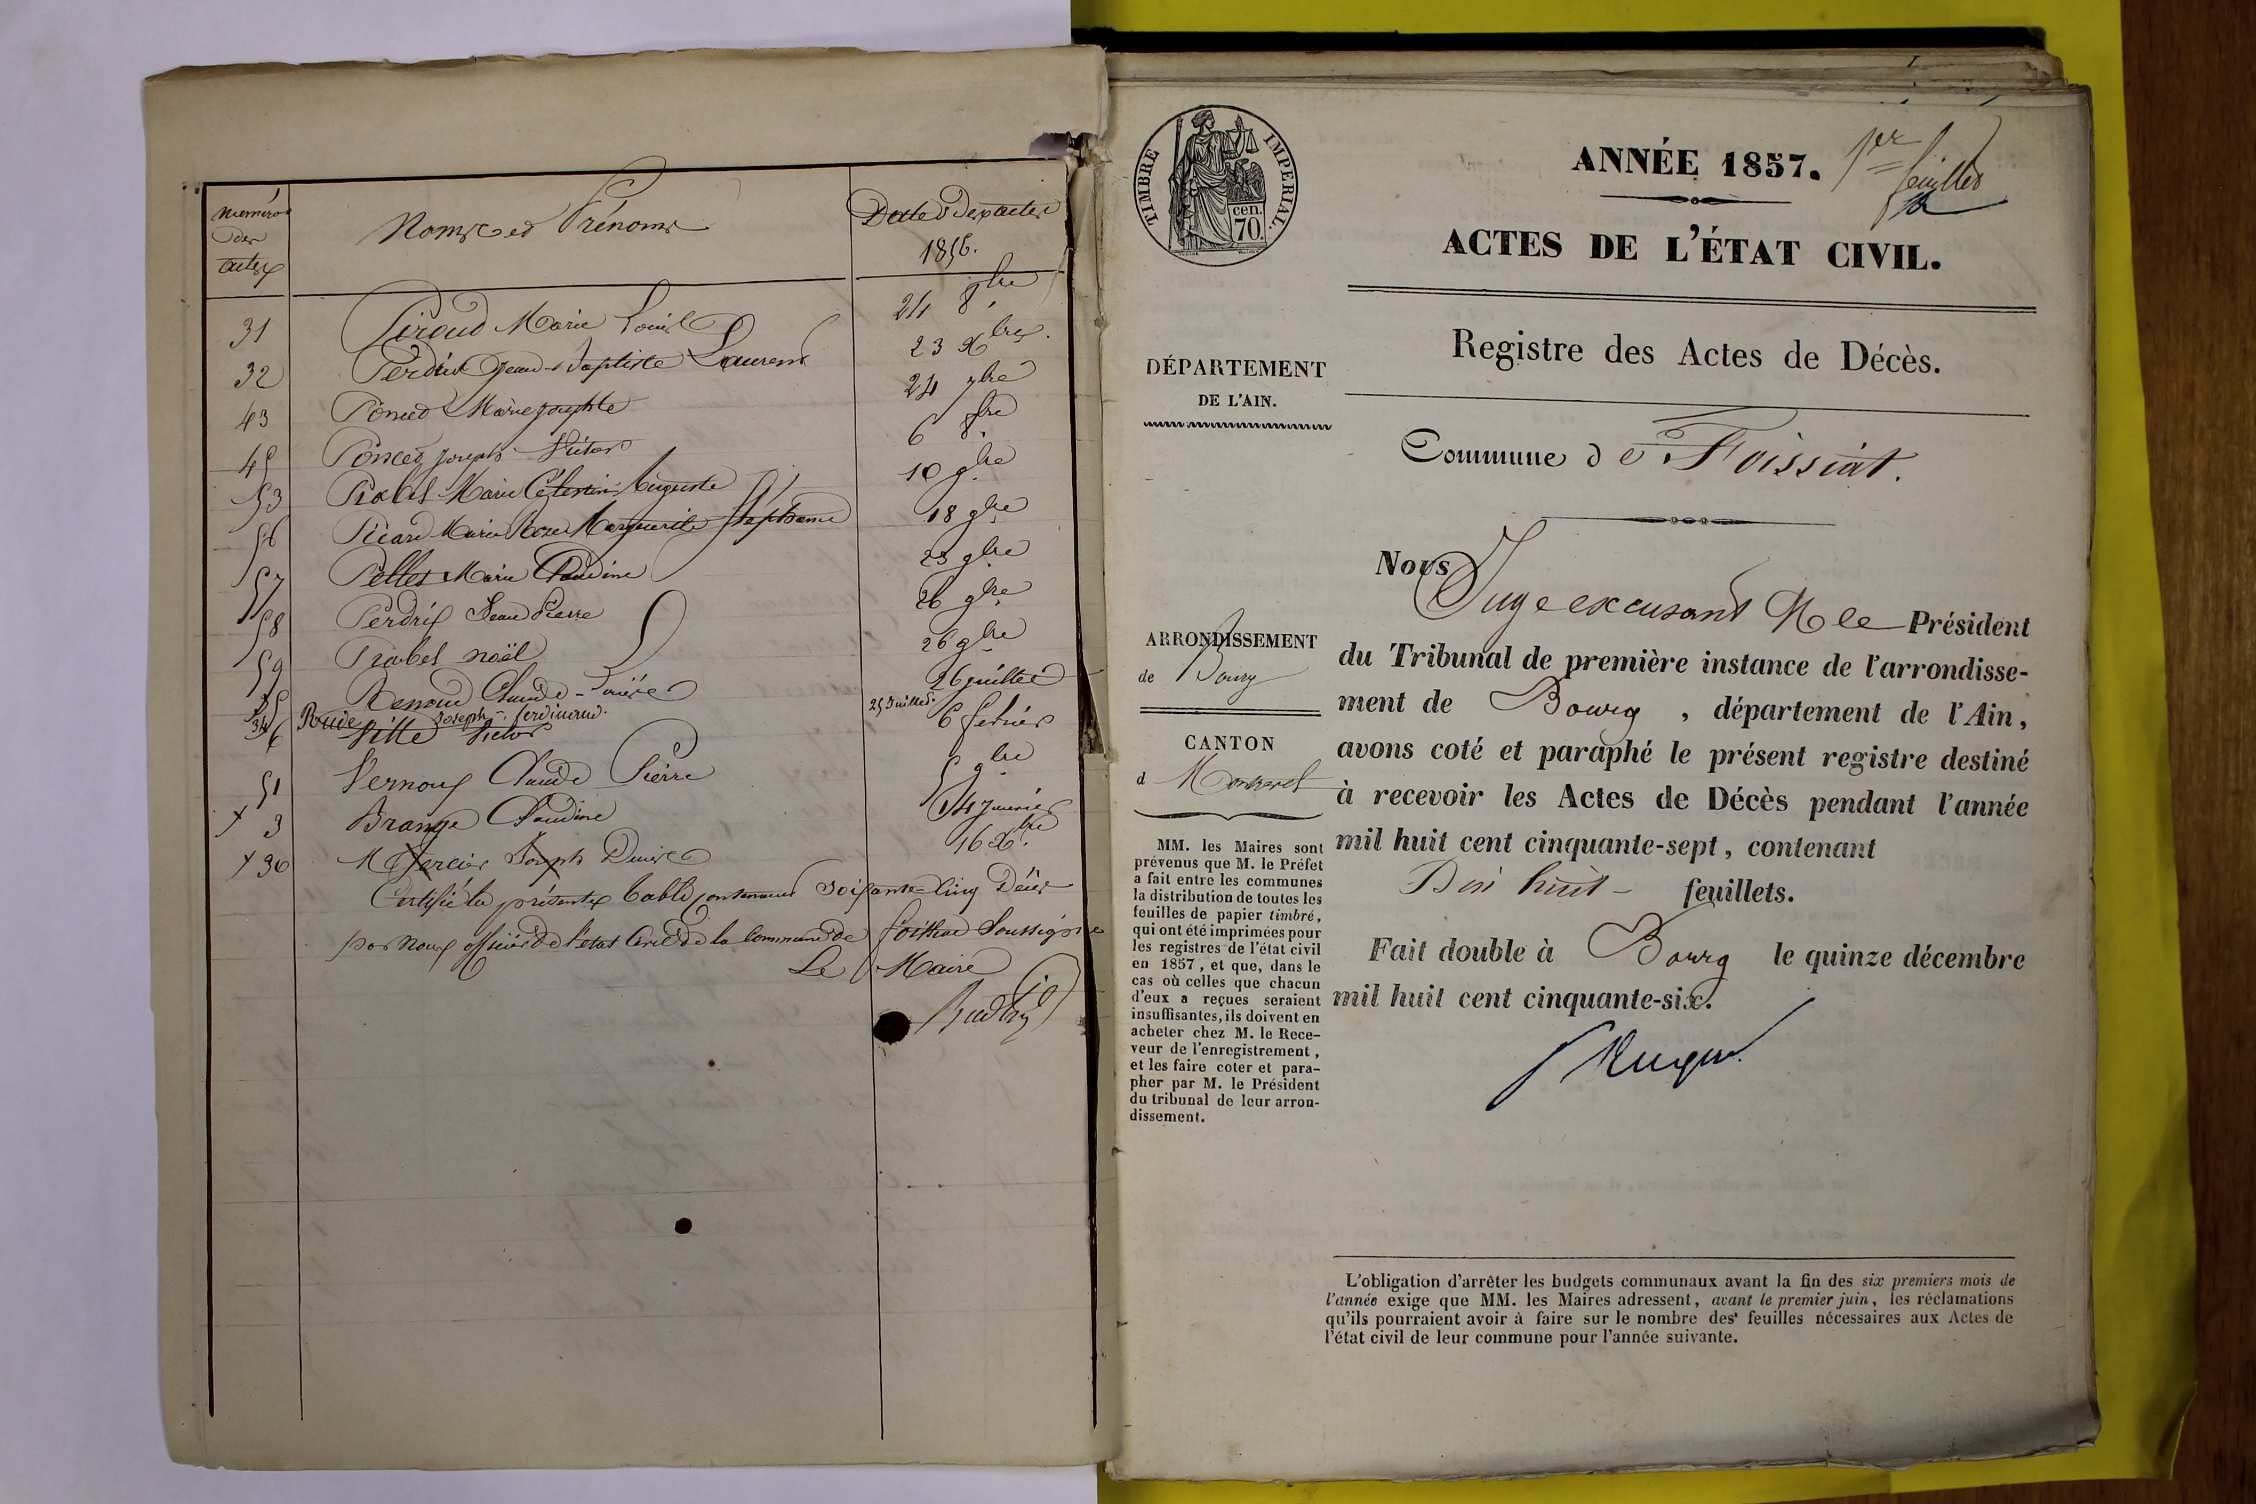 Numéros
des
actes
Noms et Prénoms
Dates des actes
1856.
31 Piroud Marie Louise 24 8bre
32 Perdrix Jean-Baptiste Laurent 23 Xbre.
43 Poncet Marie Josephte 24 7bre
45 Poncet Joseph Victor 6 8bre
53 Prabel Marie Célestine Auguste 10 9bre
56 Picard Marie Roze Marguerite Stéphanie 18 9bre
57 Pellet Marie Claudine 23 9bre
58 Perdrix Jean Pierre 26 9bre
59 Prabel noël 26 9bre
35 Renoud Claude-Louise 26 juillet
34 Rude Joseph-ferdinand. 25 Juillet.
6 Ville Victor 6 février
51 Vernoux Claude Pierre 5 9bre
x 3 Brange Claudine 14 Janvier
x 30 Mercier Joseph Denise 16 Xbre.
Certifié la présente table contenant Soixante-cinq Décès
par Nous officier de l'état Civil de la Commune de foissiat Soussigné
Le Maire
TIMBRE IMPERIAL.
cen.
70.
ANNÉE 1857.
1er feuillet
ACTES DE L'ÉTAT CIVIL.
Registre des Actes de Décès.
DÉPARTEMENT
DE L'AIN.
Commune de Foissiat.
ARRONDISSEMENT
de Bourg
CANTON
d Montrevel
MM. les Maires sont
prévenus que M. le Préfet
a fait entre les communes
la distribution de toutes les
feuilles de papier timbré,
qui ont été imprimées pour
les registres de l'état civil
en 1857, et que, dans le
cas où celles que chacun
d'eux a reçues seraient
insuffisantes, ils doivent en
acheter chez M. le Rece-
veur de l'enregistrement,
et les faire coter et para-
pher par M. le Président
du tribunal de leur arron-
dissement.
Nous Juge excusant M le Président
du Tribunal de première instance de l'arrondisse-
ment de Bourg, département de l'Ain,
avons coté et paraphé le présent registre destiné
à recevoir les Actes de Décès pendant l'année
mil huit cent cinquante-sept, contenant
Dix huit feuillets.
Fait double à Bourg le quinze décembre
mil huit cent cinquante-six.
L'obligation d'arrêter les budgets communaux avant la fin des six premiers mois de
l'année exige que MM. les Maires adressent, avant le premier juin, les réclamations
qu'ils pourraient avoir à faire sur le nombre des feuilles nécessaires aux Actes de
l'état civil de leur commune pour l'année suivante.